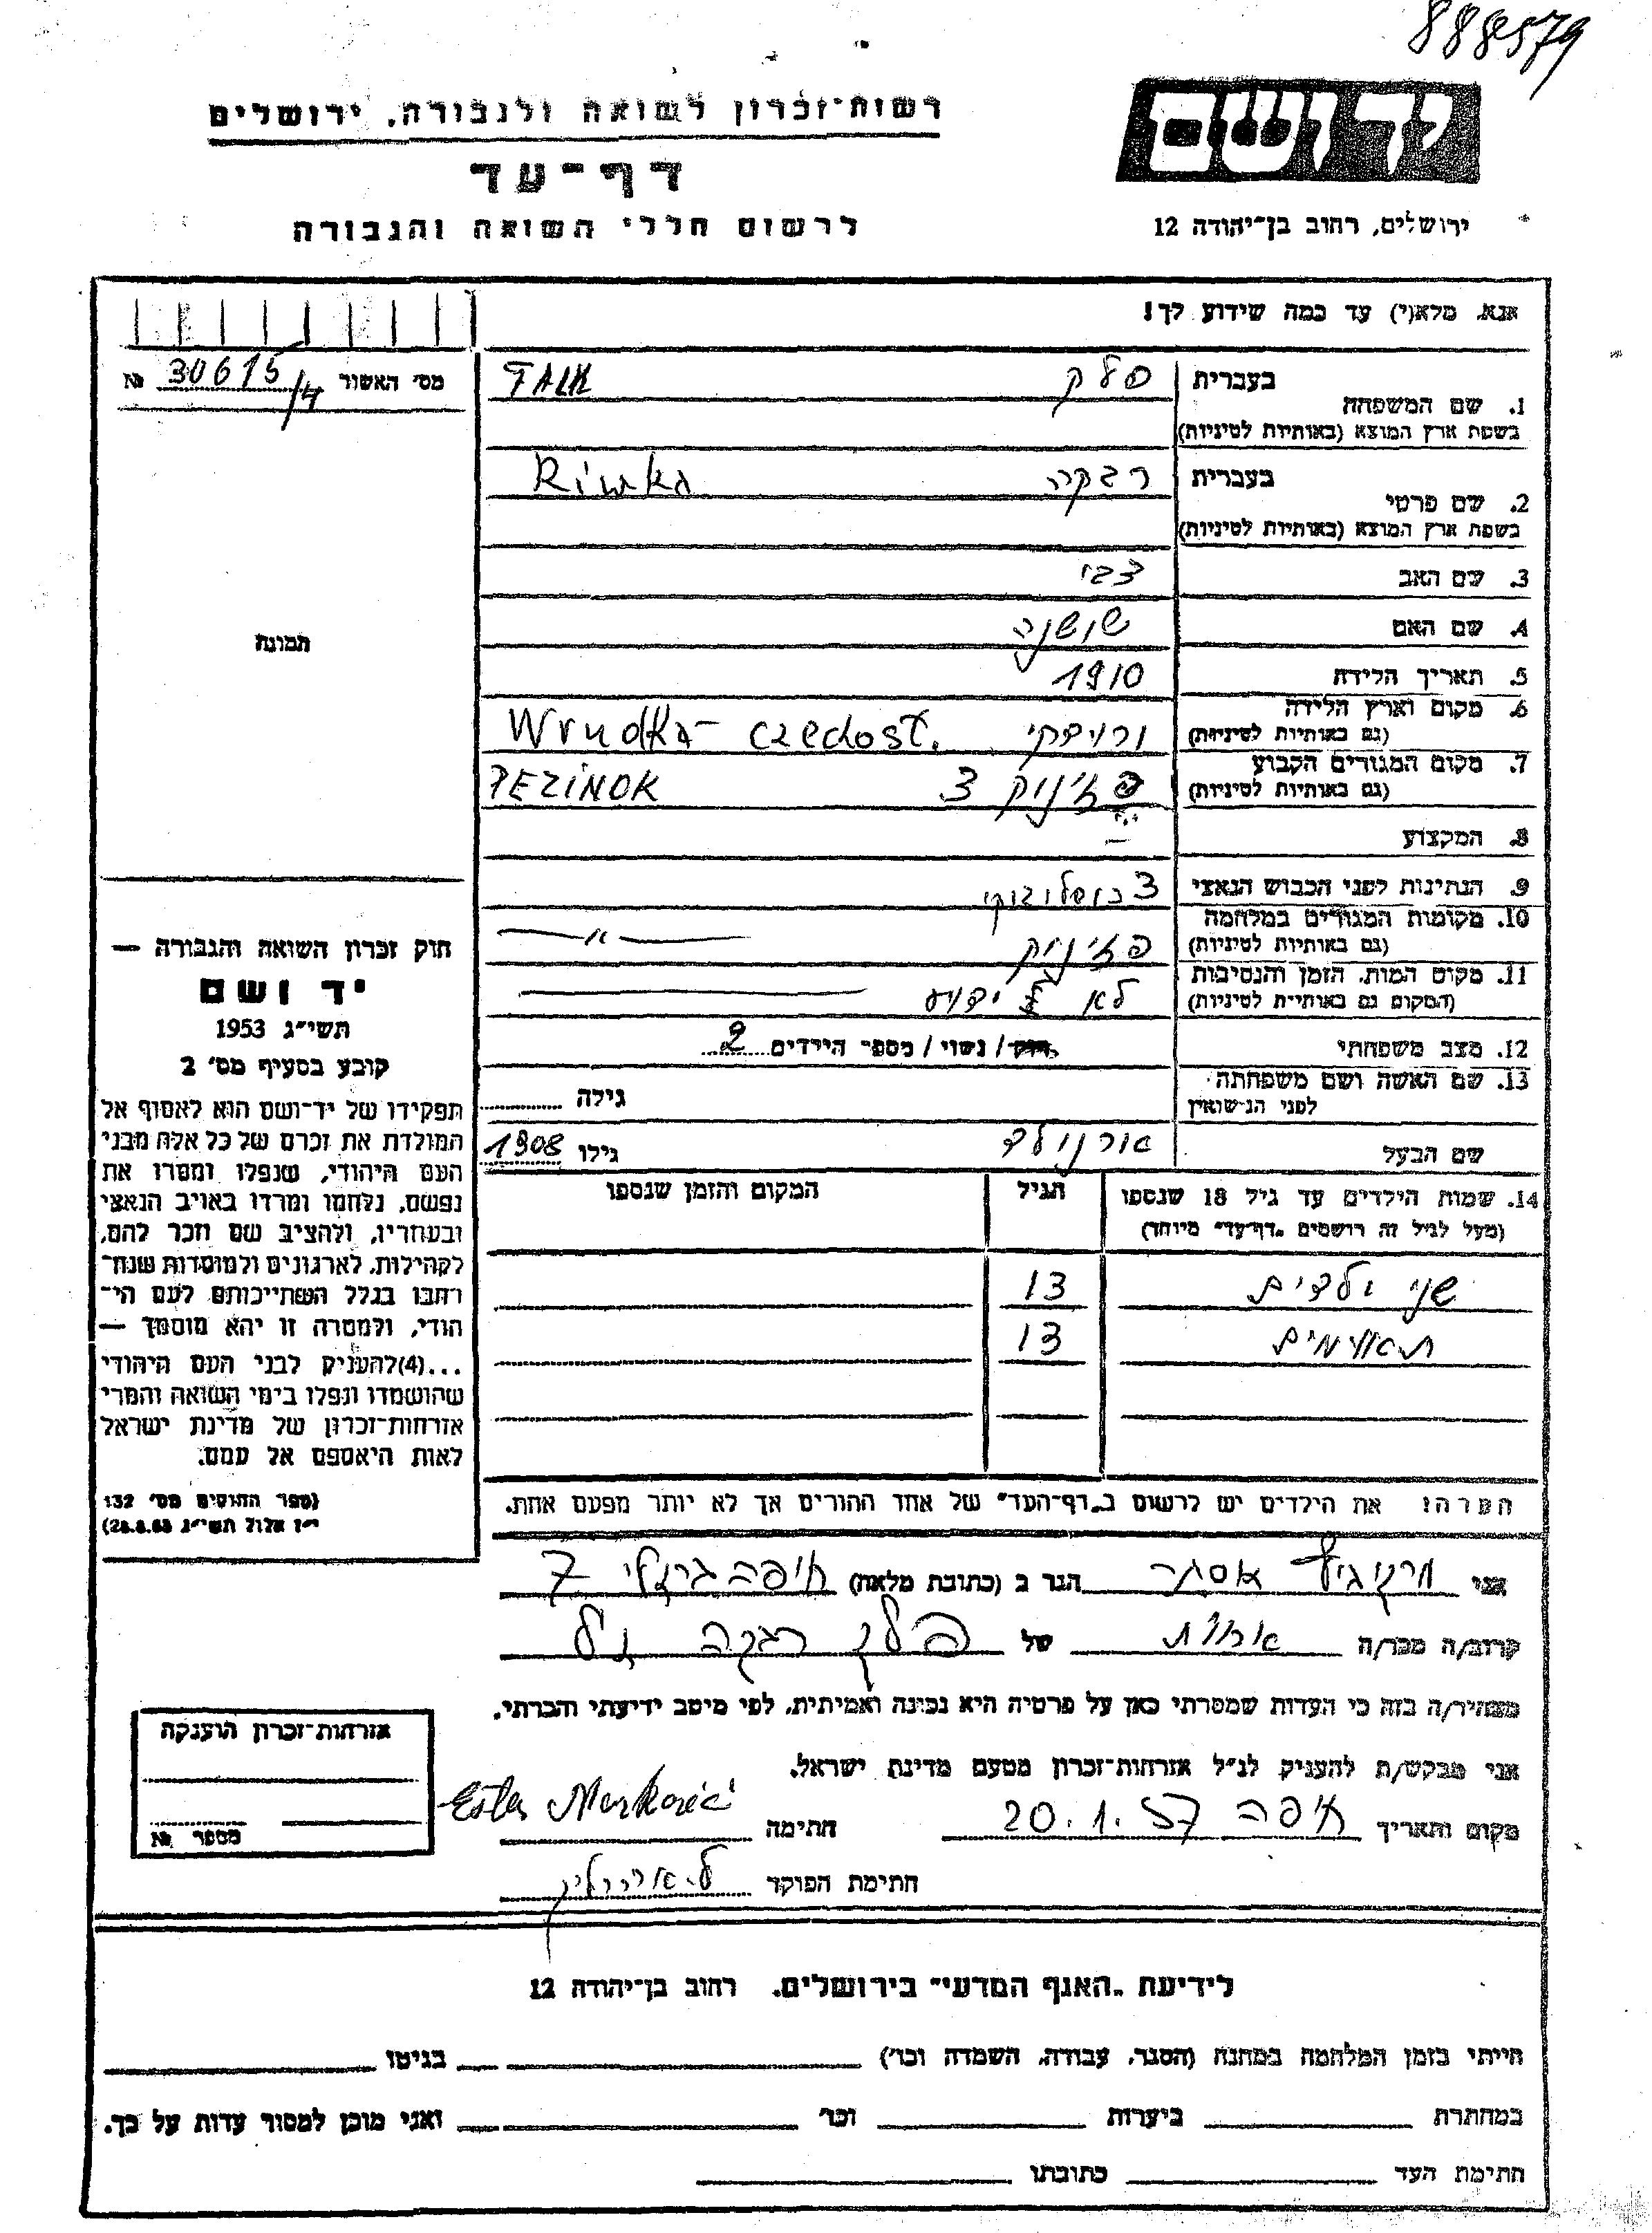 888579
רשות־זכרון לשואה ולגבורה, ירושלים
יד ושם
דף־עד
לרשום חללי השואה והגבורה
ירושלים, רחוב בן־יהודה 12
אנא, מלא(י) עד כמה שידוע לך!
מס׳ האשור № 30615/4
1. שם המשפחה בעברית פלק FALK
בשפת ארץ המוצא (באותיות לטיניות)
2. שם פרטי בעברית רבקה Riwka
בשפת ארץ המוצא (באותיות לטיניות)
3. שם האב צבי
4. שם האם שושנה
5. תאריך הלידה 1910
6. מקום וארץ הלידה
(גם באותיות לטיניות) Wrudka - czechosł.
7. מקום המגורים הקבוע
(גם באותיות לטיניות) פזינוק צ PEZINOK
8. המקצוע –
9. הנתינות לפני הכבוש הנאצי צכוסלובקי
10. מקומות המגורים במלחמה
(גם באותיות לטיניות) פזינוק —〃—
11. מקום המות, הזמן והנסיבות
(המקום גם באותיות לטיניות) לא ידוע
12. מצב משפחתי רווק/ נשוי / מספר הילדים 2
13. שם האשה ושם משפחתה
לפני הנישואין גילה
שם הבעל ארנולד גילו 1908
14. שמות הילדים עד גיל 18 שנספו הגיל המקום והזמן שנספו
(מעל לגיל זה רושמים "דף־עד" מיוחד)
שני ילדים 13
תאומים 13
הערה: את הילדים יש לרשום ב"דף־העד" של אחד ההורים אך לא יותר מפעם אחת.
תמונה
חוק זכרון השואה והגבורה —
יד ושם
תשי״ג 1953
קובע בסעיף מס׳ 2
תפקידו של יד־ושם הוא לאסוף אל
המולדת את זכרם של כל אלה מבני
העם היהודי, שנפלו ומסרו את
נפשם, נלחמו ומרדו באויב הנאצי
ובעוזריו, ולהציב שם וזכר להם,
לקהילות, לארגונים ולמוסדות שנח־
רבו בגלל השתייכותם לעם הי־
הודי, ולמטרה זו יהא מוסמך —
...(4) להעניק לבני העם היהודי
שהושמדו ונפלו בימי השואה והמרי
אזרחות־זכרון של מדינת ישראל
לאות היאספם אל עמם.
(ספר החוקים מס׳ 132
י״ז אלול תשי״ג 28.8.53)
אני אסתר הגר ב (כתובת מלאה) חיפה 7
קרוב/ה מכר/ה אחות של פלק רבקה ז״ל
מצהיר/ה בזה כי העדות שמסרתי כאן על פרטיה היא נכונה ואמיתית, לפי מיטב ידיעתי והכרתי.
אני מבקש/ת להעניק לנ״ל אזרחות־זכרון מטעם מדינת ישראל.
מקום ותאריך חיפה 20.1.57 חתימה Ester Marković
חתימת הפוקד
אזרחות־זכרון הוענקה
מספר №
לידיעת "האגף המדעי" בירושלים, רחוב בן־יהודה 12
הייתי בזמן המלחמה במחנה (הסגר, עבודה, השמדה וכו׳) בגיטו
במחתרת ביערות וכו׳ ואני מוכן למסור עדות על כך.
חתימת העד כתובתו